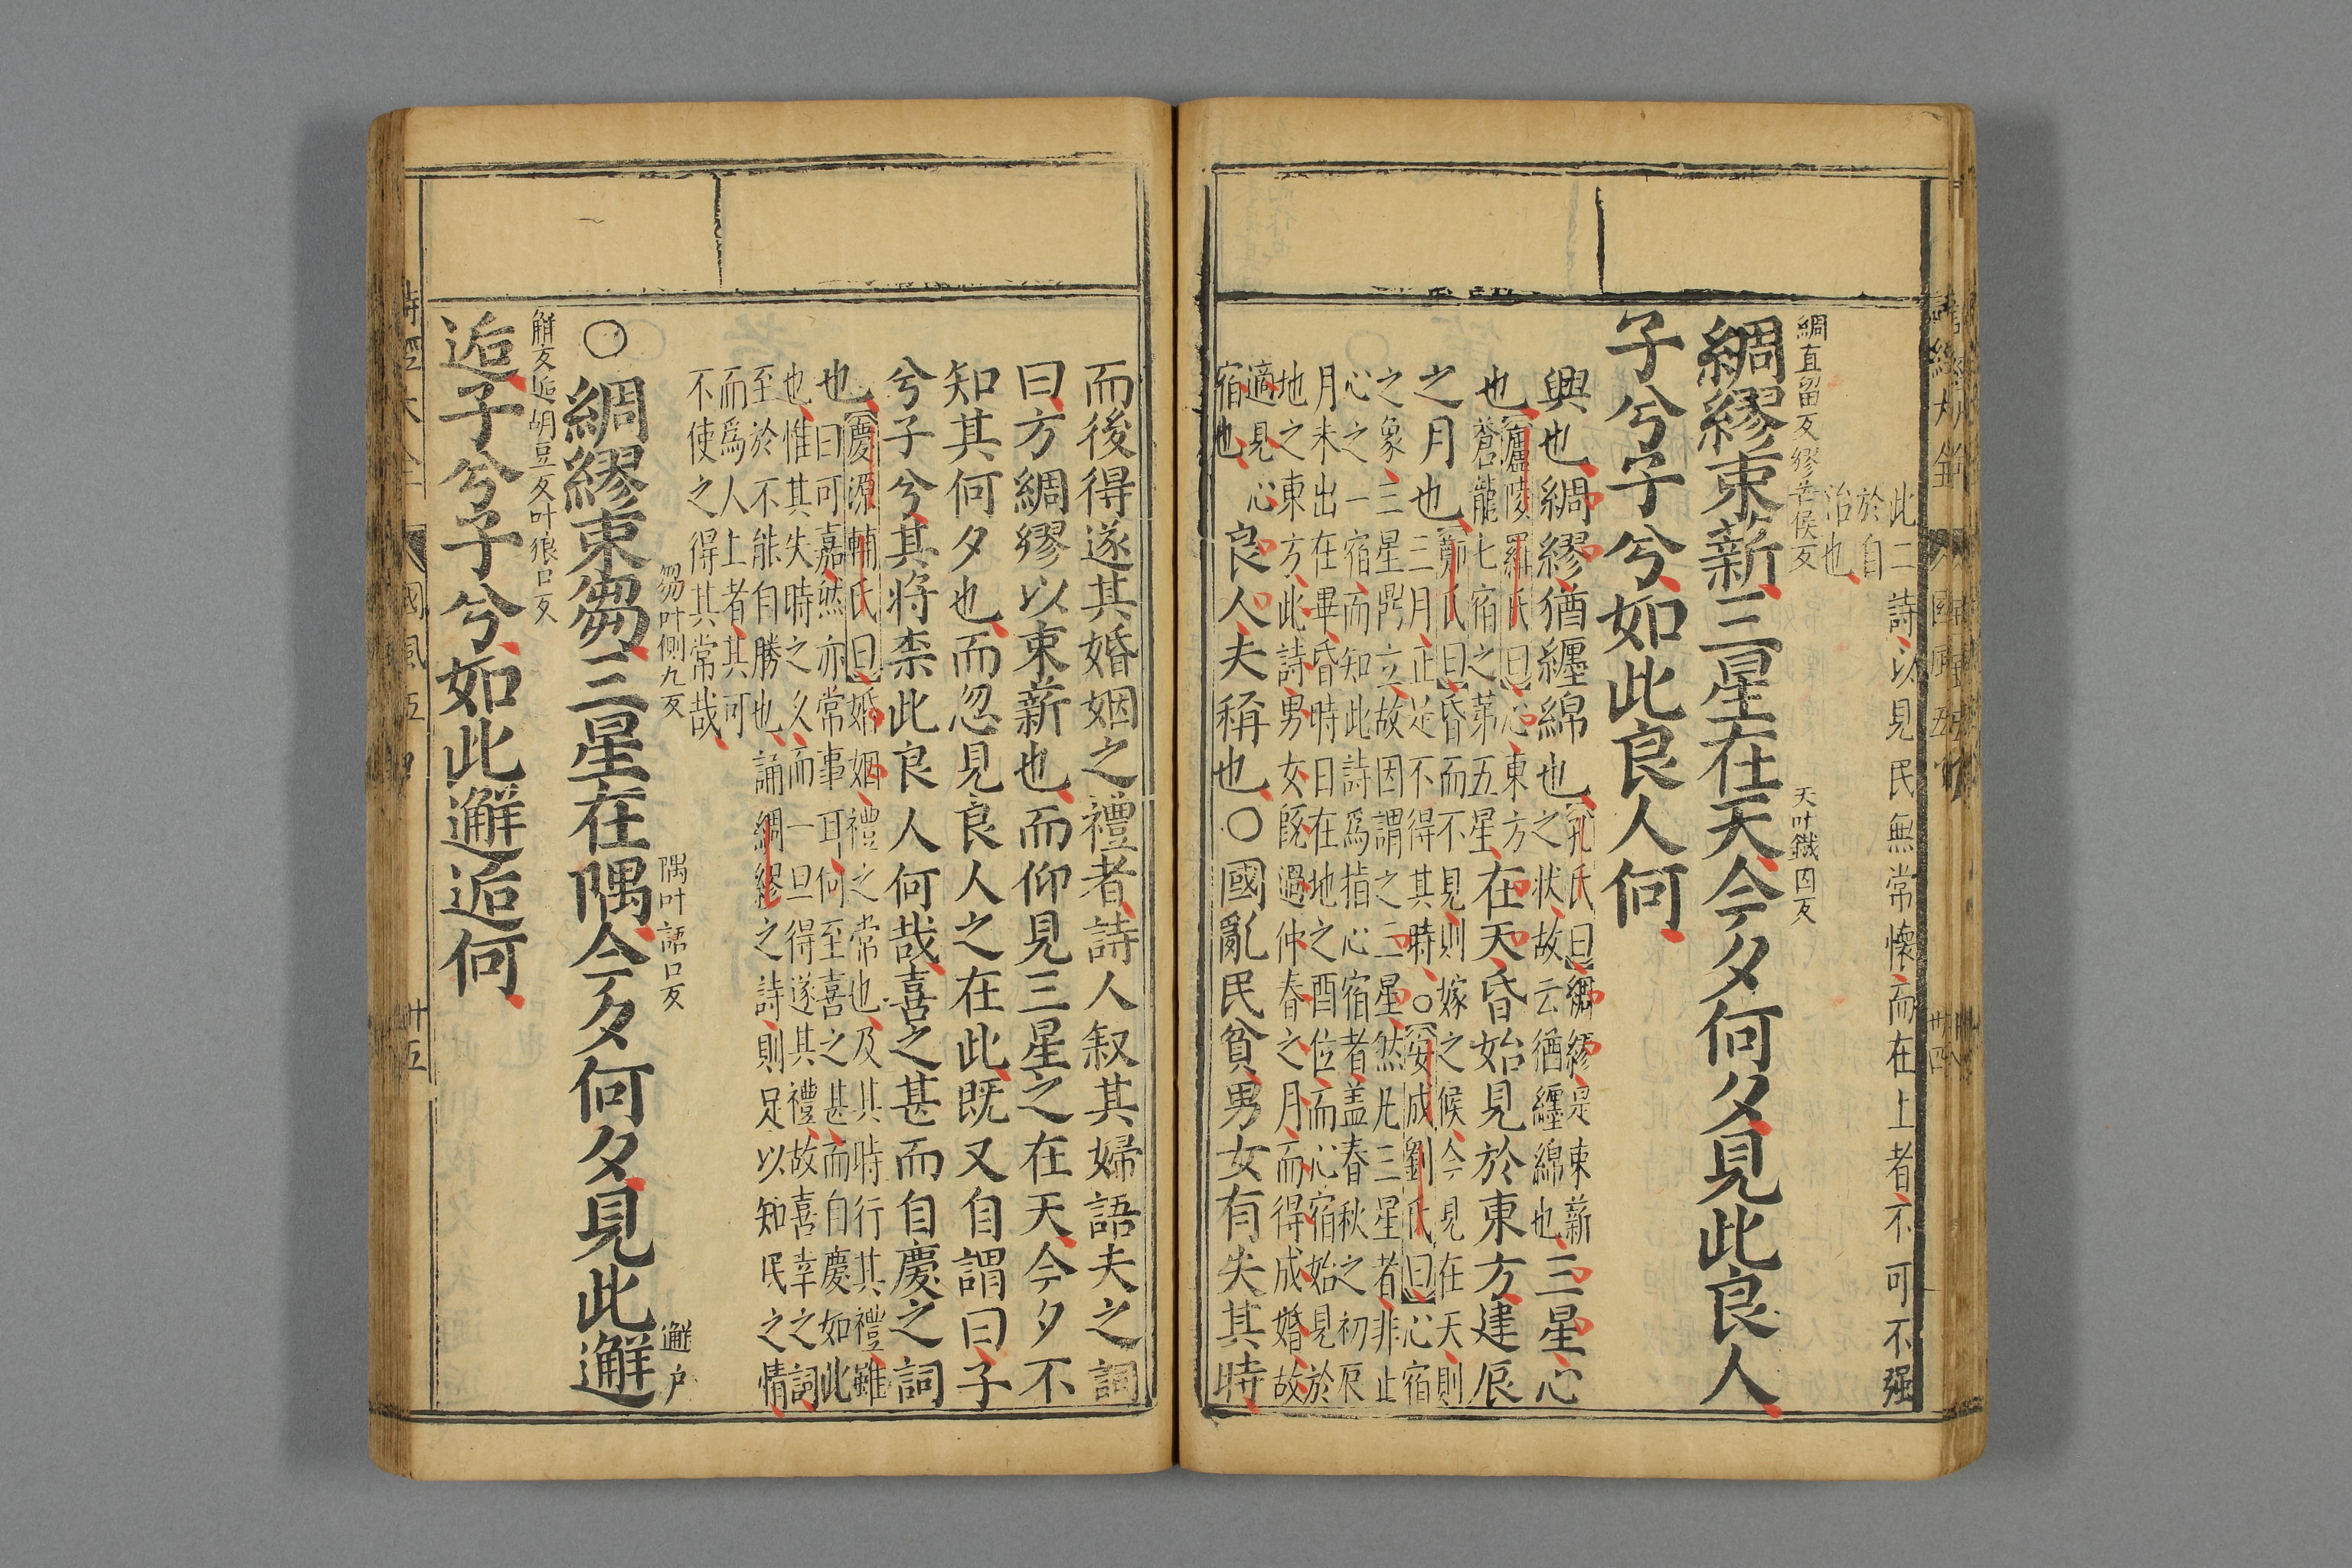 此二詩以見民無常懷而在上者不可不强
於自
治也
綢直留反繆芒侯反
天叶鐵因反
綢繆束薪三星在天今夕何夕見此良人
子兮子兮如此良人何
興也綢繆猶纏綿也
孔氏曰綢繆是束薪
之狀故云猶纏綿也
三星心
也
廬陵羅氏曰心東方
蒼龍七宿之第五星
在天昏始見於東方建辰
之月也
鄭氏曰昏而不見則嫁之候今見在天則
三月正是不得其時○安成劉氏曰心宿
之象三星鼎立故因謂之三星然凡三星者非止
心之一宿而知此詩爲指心宿者盖春秋之初辰
月末出在畢昏時日在地之酉位而心宿始見於
地之東方此詩男女旣過仲春之月而得成婚故
適見心
宿也
良人夫稱也○國亂民貧男女有失其時
而後得遂其婚姻之禮者詩人叙其婦語夫之詞
曰方綢繆以束薪也而仰見三星之在天今夕不
知其何夕也而忽見良人之在此既又自謂曰子
兮子兮其將柰此良人何哉喜之甚而自慶之詞
也
慶源輔氏曰婚姻禮之常也及其時行其禮雖
曰可嘉然亦常事耳何至喜之甚而自慶如此
也惟其失時之久而一旦得遂其禮故喜幸之詞
至於不能自勝也誦綢繆之詩則足以知民之情
而爲人上者其可
不使之得其常哉
芻叶側九反
隅叶語口反
邂户
○綢繆束芻三星在隅今夕何夕見此邂
解反逅胡豆反叶狼口反
逅子兮子兮如此邂逅何
詩經大全
國風五
卄五